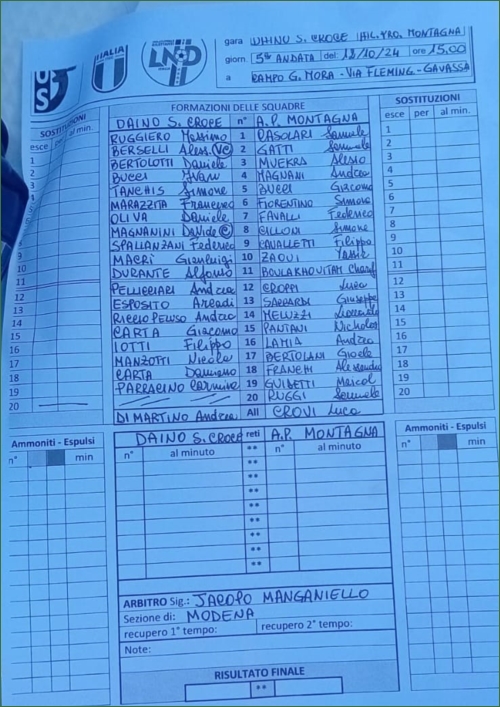 ITALIA
LND
gara DAINO S. CROCE |AL.PRO. MONTAGNA
giorn. 5ª ANDATA del 18/10/24 ore 15,00
a CAMPO G. MORA - VIA FLEMING - GAVASSA
FORMAZIONI DELLE SQUADRE
SOSTITUZIONI
esce per al min.
SOSTITUZIONI
esce per al min.
DAINO S. CROCE n° A.P. MONTAGNA
RUGGIERO Massimo 1 CASOLARI Samuele
BERSELLI Aless. VC 2 GATTI Samuele
BERTOLOTTI Daniele 3 MUEKRA Alesio
BUCCI Ivan 4 MAGNANI Andrea
TANCHIS Simone 5 BUCCI Giacomo
MARAZZITA Francesco 6 FIORENTINO Simone
OLIVA Daniele 7 FAVALLI Federico
MAGNANINI Davide C 8 CILLONI Simone
SPALLANZANI Federico 9 CAVALLETTI Filippo
MACRÌ Gianluigi 10 ZAOUI
DURANTE Alfonso 11 BOULAKHOUITAM
PELLICCIARI Andrea 12 CROPPI Luca
ESPOSITO Arcadi 13 Giuseppe
RICCIO PELUSO Andrea 14 MELUZZI
CARTA Giacomo 15 PANTANI Nicholas
IOTTI Filippo 16 LAMIA Andrea
MANZOTTI Nicola 17 BERTOLANI Gioele
CARTA Damiano 18 FRANCHI Alessandro
PARRACINO Carmine 19 GUIBETTI Marcol
20 RUGGI Samuele
DI MARTINO Andrea All CROVI Luca
Ammoniti - Espulsi
n° min
DAINO S. CROCE reti A.P. MONTAGNA
n° al minuto ** n° al minuto
Ammoniti - Espulsi
n° min
ARBITRO Sig.: JACOPO MANGANIELLO
Sezione di: MODENA
recupero 1° tempo: recupero 2° tempo:
Note:
RISULTATO FINALE
**